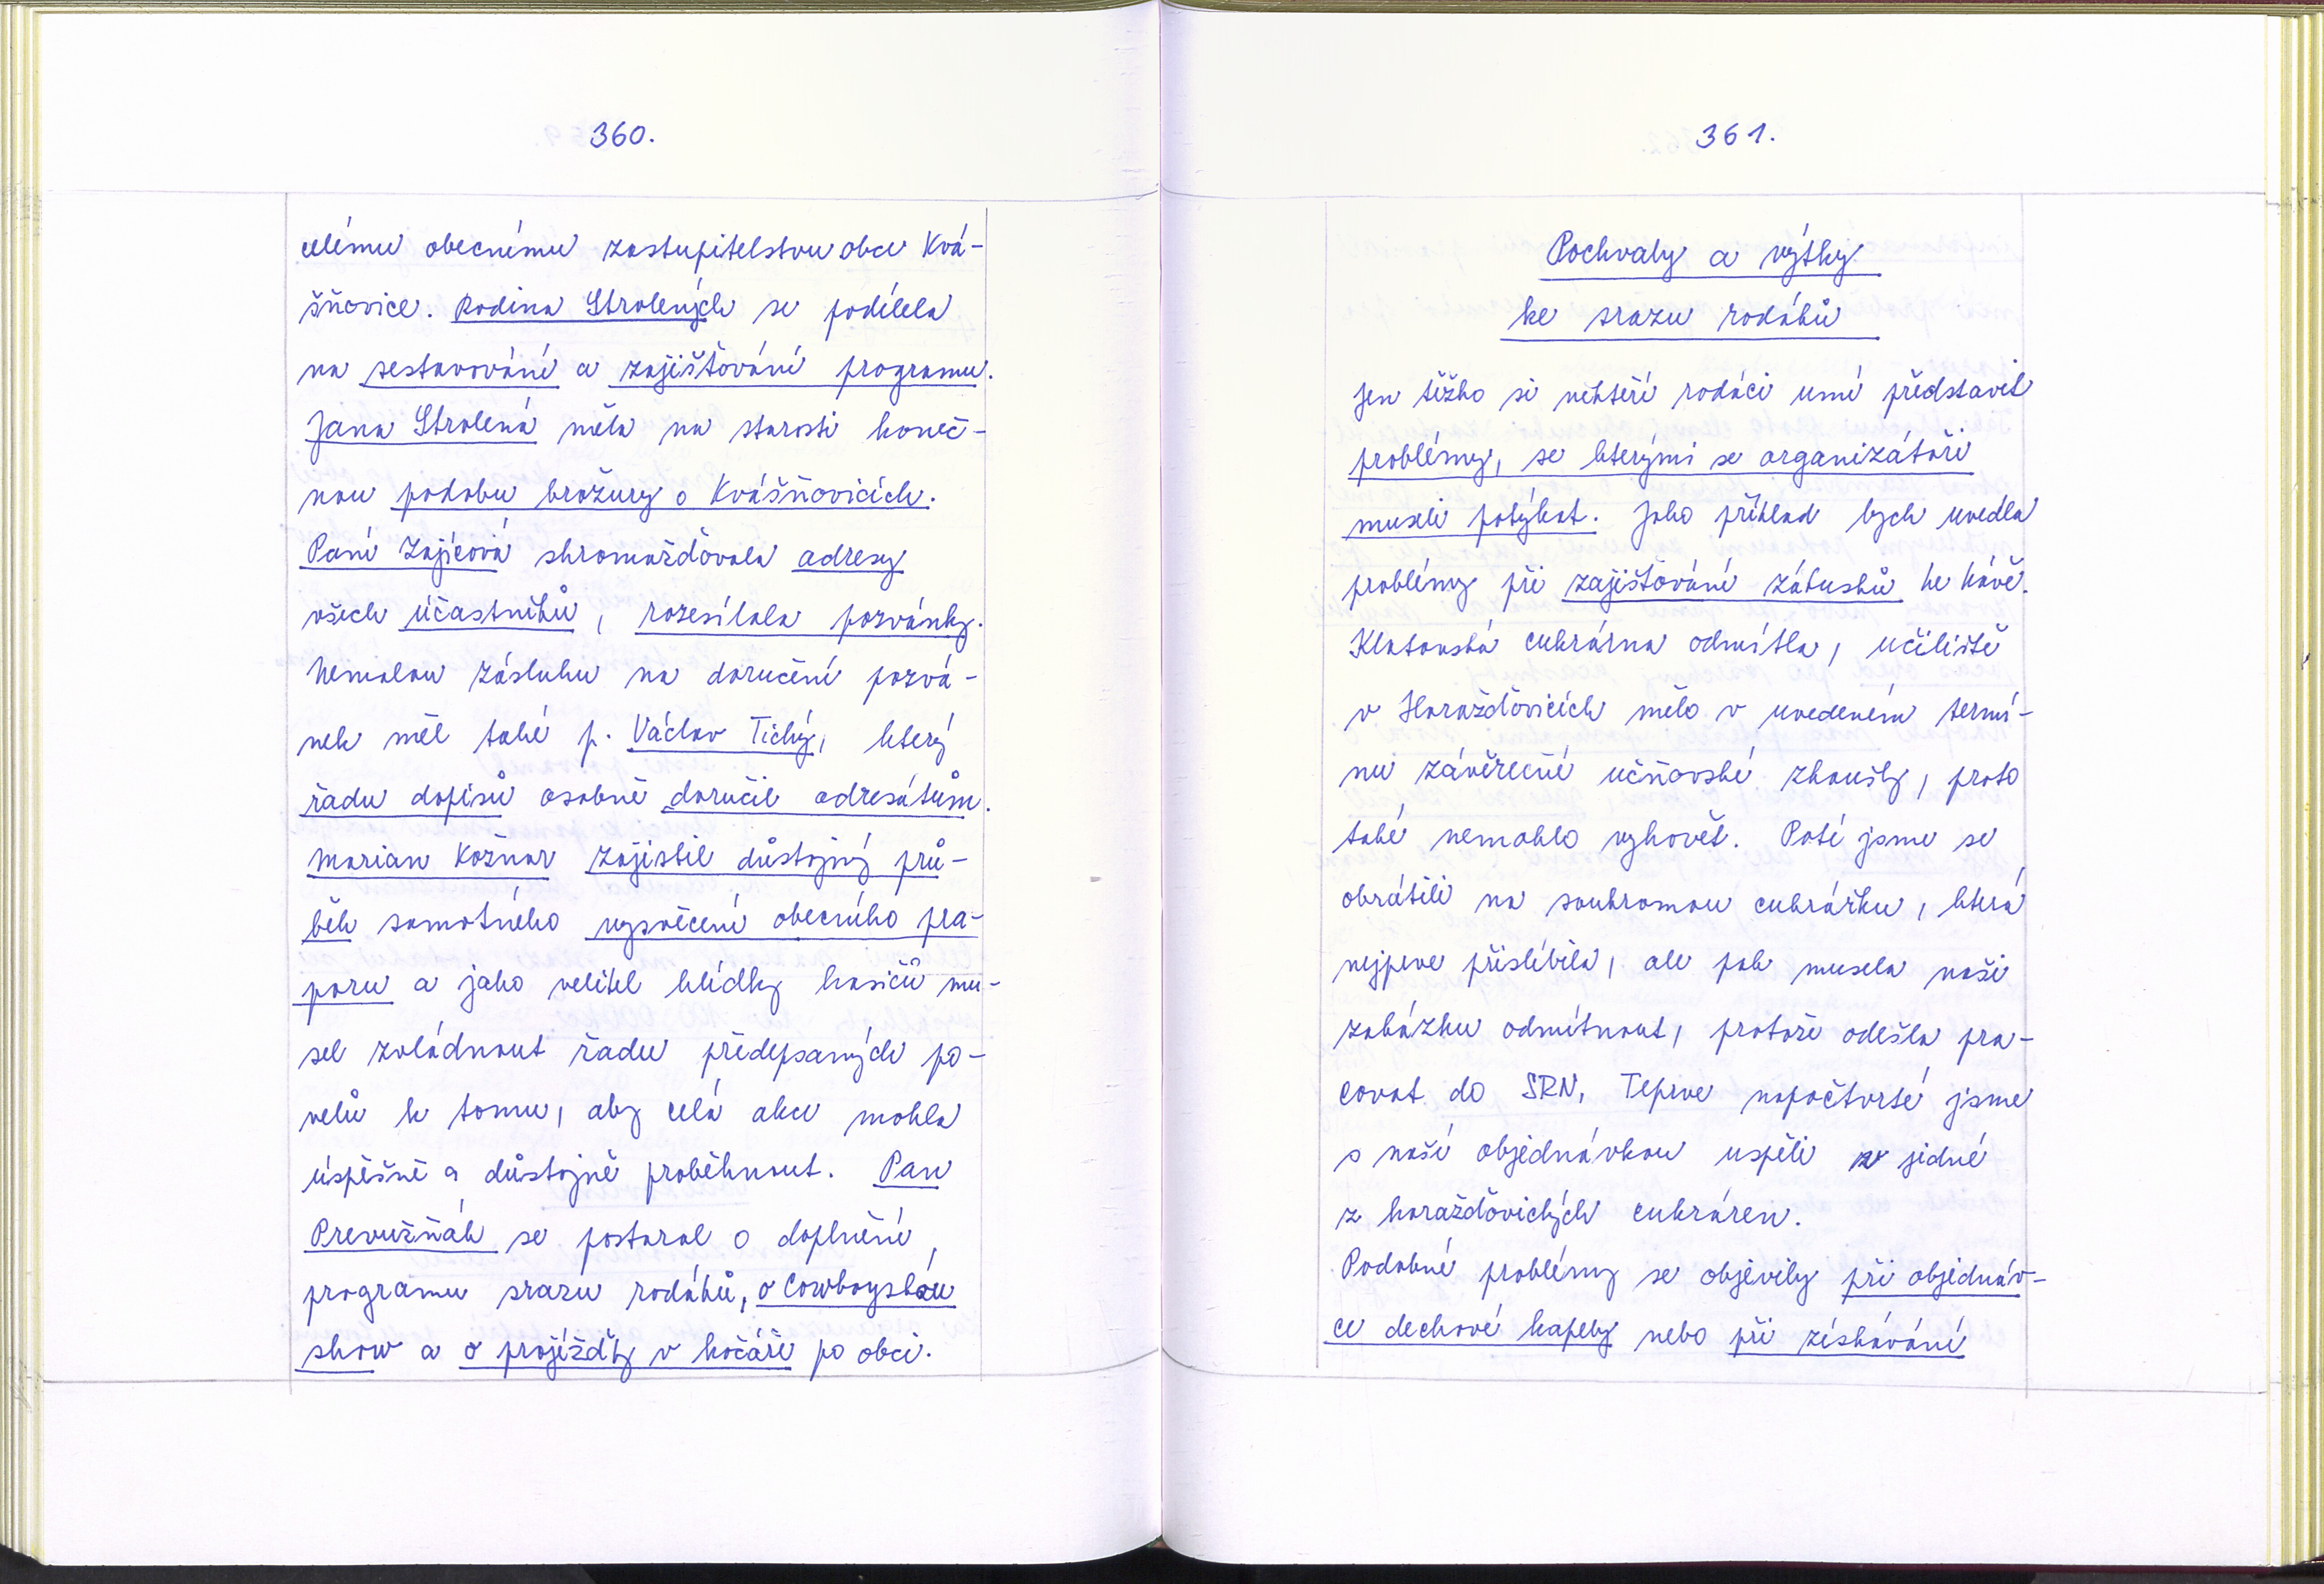 360.
celému obecnému zastupitelstvu obce Kvá-
šňovice. Rodina Strolených se podílela
na sestavování a zajišťování programu.
Jana Strolená měla na starosti koneč-
nou podobu brožury o Kvášňovicích.
Paní Zajícová shromažďovala adresy
všech účastníků, rozesílala pozvánky.
Nemalou zásluhu na doručení pozvá-
nek měl také p. Václav Tichý, který
řadu dopisů osobně doručil adresátům.
Marian Koznar zajistil důstojný prů-
běh samotného vysvěcení obecního pra-
poru a jako velitel hlídky hasičů mu-
sel zvládnout řadu předepsaných po-
velů k tomu, aby celá akce mohla
úspěšně a důstojně proběhnout. Pan
Prevužňák se postaral o doplnění
programu srazu rodáků, o Cowboyskou
show a o projížďky v kočáře po obci.
361.
Pochvaly a výtky
ke srazu rodáků
Jen těžko si někteří rodáci umí představit
problémy, se kterými se organizátoři
museli potýkat. Jako příklad bych uvedla
problémy při zajišťování zákusků ke kávě.
Klatovská cukrárna odmítla, učiliště
v Horažďovicích mělo v uvedeném termí-
nu závěrečné učňovské zkoušky, proto
také nemohlo vyhovět. Poté jsme se
obrátili na soukromou cukrářku, která
nejprve přislíbila, ale pak musela naši
zakázku odmítnout, protože odešla pra-
covat do SRN. Teprve napočtvrté jsme
s naší objednávkou uspěli v jedné
z horažďovických cukráren.
Podobné problémy se objevily při objednáv-
ce dechové kapely nebo při získávání